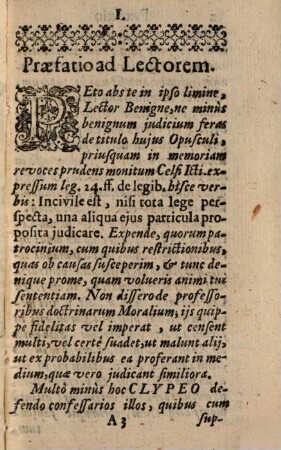 I.
Præfatio ad Lectorem.
PEto abs te in ipso limine,
Lector Benigne, ne minùs
benignum judicium feras
de titulo hujus Opusculi,
priusquam in memoriam
revoces prudens monitum Celsi Icti. ex-
pressum leg. 24. ff. de legib. hisce ver-
bis: Incivile est, nisi tota lege per-
specta, una aliqua ejus particula pro-
posita judicare. Expende, quorum pa-
trocinium, cum quibus restrictionibus,
quas ob causas susceperim, & tunc de-
nique prome, quam volueris animi tui
sententiam. Non dissero de professo-
ribus doctrinarum Moralium; ijs quip-
pe fidelitas vel imperat, ut censent
multi, vel certè suadet, ut malunt alij,
ut ex probabilibus ea proferant in me-
dium, quæ vero judicant similiora.
Multò minùs hoc CLYPEO de-
fendo confessarios illos, quibus cum
A 3 sup-